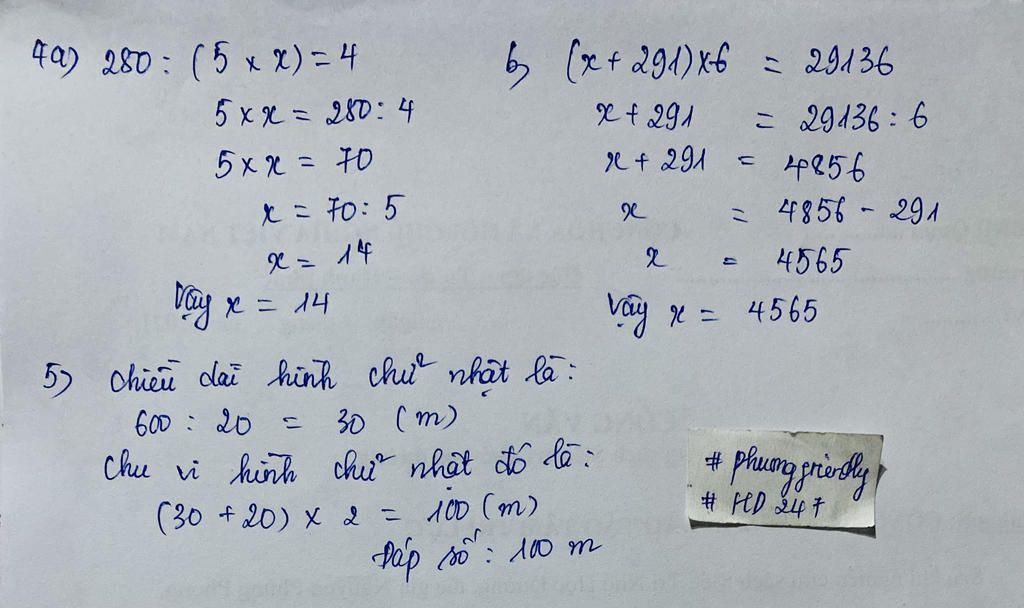 4a) 280 : (5 x x) = 4
5 x x = 280 : 4
5 x x = 70
x = 70 : 5
x = 14
Vậy x = 14
b) (x + 291) x 6 = 29136
x + 291 = 29136 : 6
x + 291 = 4856
x = 4856 - 291
x = 4565
Vậy x = 4565
5) Chiều dài hình chữ nhật là :
600 : 20 = 30 (m)
Chu vi hình chữ nhật đó là :
(30 + 20) x 2 = 100 (m)
Đáp số : 100 m
# phuong
# HD 247